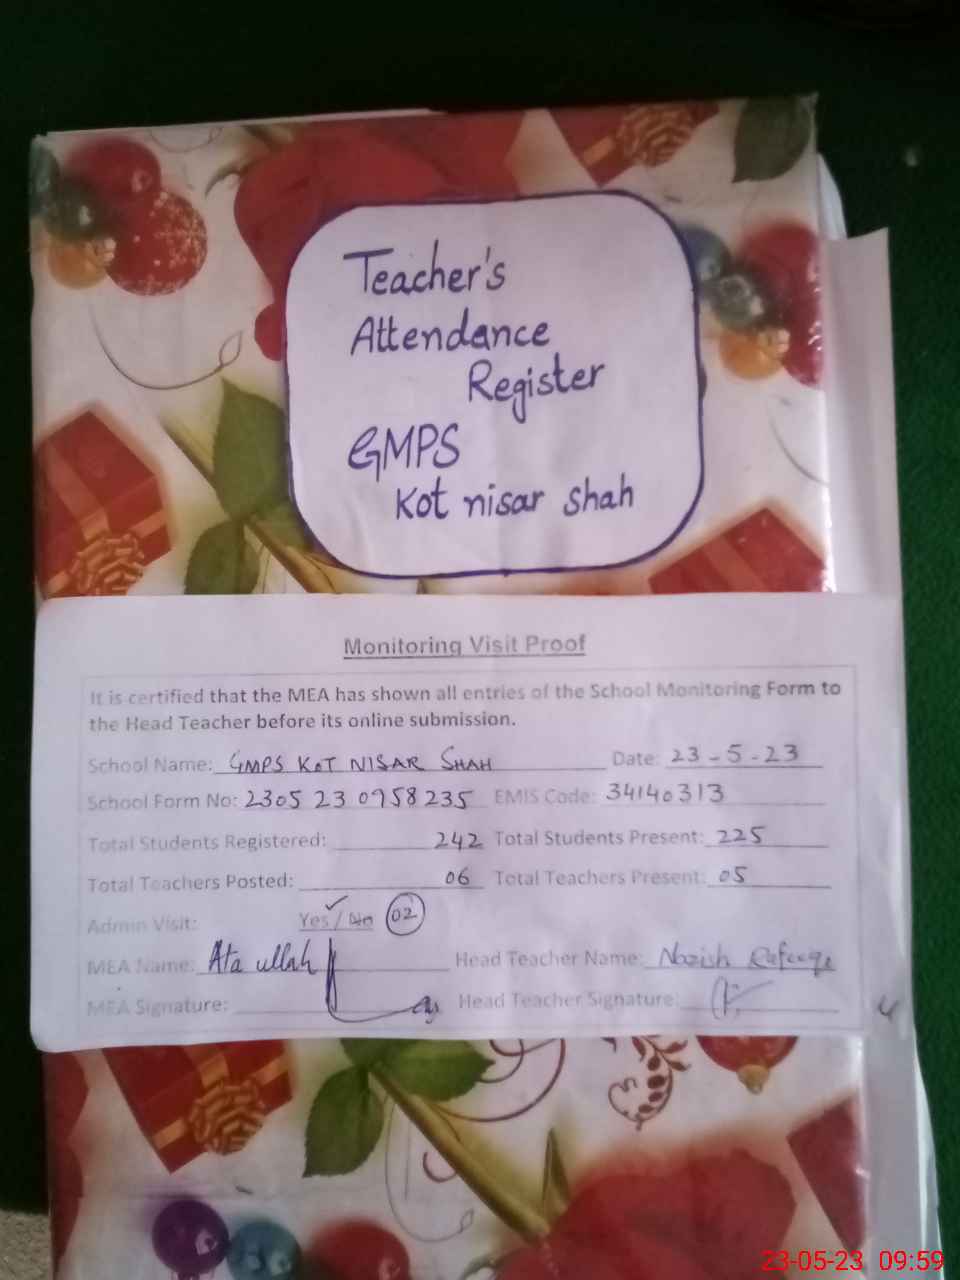 Teacher's
Attendance
Register
GMPS
Kot nisar shah
Monitoring Visit Proof
It is certified that the MEA has shown all entries of the School Monitoring Form to
the Head Teacher before its online submission.
School Name: GMPS KOT NISAR SHAH Date: 23-5-23
School Form No: 2305 23 0958235 EMIS Code: 34140313
Total Students Registered: 242 Total Students Present: 225
Total Teachers Posted: 06 Total Teachers Present: 05
Admin Visit: Yes / No 02
MEA Name: Ata ullah Head Teacher Name: Nazish Rafeeqe
MEA Signature: Head Teacher Signature:
23-05-23 09:59